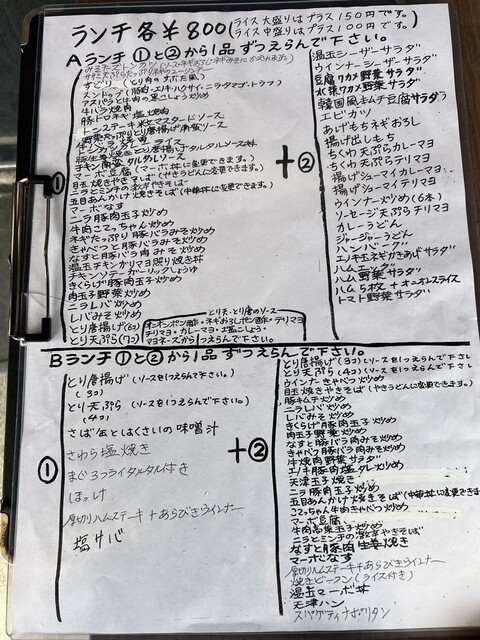 ランチ各￥800(ライス大盛りはプラス150円です。
ライス中盛りはプラス100円です。)
Aランチ ①と②から1品ずつえらんで下さい。
①
アスパラと牛肉の黒こしょう炒め
牛バラ焼肉
豚トロネギ塩焼肉
マーボ豆腐(マーボ丼に変更できます。)
目玉焼きやきそば(やきうどんに変更できます。)
ニラとミンチの激辛やきそば
五目あんかけ焼きそば(中華丼に変更できます。)
マーボなす
ニラ豚肉玉子炒め
牛肉ごっちゃん炒め
ネギたっぷり豚バラみそ炒め
きゃべつと豚バラみそ炒め
なすと豚バラ肉みそ炒め
温玉チキンカリマヨ照り焼き丼
チキンソテーガーリックしょうゆ
きくらげ豚肉玉子炒め
肉玉子野菜炒め
ニラレバ炒め
レバみそ炒め
とり唐揚げ(6コ)
とり天ぷら(7コ)
とり天・とり唐のソース
オニオンポン酢・ネギおろしポン酢・テリマヨ
テリマヨ・カレーマヨ・塩こしょう・
マヨネーズから1つえらんで下さい。
＋②
温玉シーザーサラダ
ウインナーシーザーサラダ
豆腐ワカメ野菜サラダ
水菜ワカメ野菜サラダ
韓国風キムチ豆腐サラダ
エビカツ
あげもちネギおろし
揚げ出しもち
ちくわ天ぷらカレーマヨ
ちくわ天ぷらテリマヨ
揚げシューマイカレーマヨ
揚げシューマイテリマヨ
ウインナー炒め(6本)
ソーセージ天ぷらテリマヨ
カレーうどん
ジャージャーうどん
ハンバーグ
エノキ玉ネギかきあげサラダ
ハムエッグ
ハム野菜サラダ
ハム5枚+オニオンスライス
トマト野菜サラダ
Bランチ ①と②から1品ずつえらんで下さい。
①
とり唐揚げ(ソースを1つえらんで下さい。)
(3コ)
とり天ぷら(ソースを1つえらんで下さい。)
(4コ)
さば缶とはくさいの味噌汁
さわら塩焼き
まぐろフライタルタル付き
ほっけ
厚切りハムステーキ+あらびきウインナー
塩サバ
＋②
とり唐揚げ(3コ)(ソースを1つえらんで下さい
とり天ぷら(4コ)(ソースを1つえらんで下さい
ウインナーきゃべつ炒め
目玉焼きやきそば(やきうどんに変更できます。)
豚キムチ炒め
ニラレバ炒め
レバみそ炒め
きくらげ豚肉玉子炒め
肉玉子野菜炒め
なすと豚バラ肉みそ炒め
キャベツ豚バラ肉みそ炒め
牛焼肉野菜サラダ
エノキ豚肉塩ダレ炒め
天津玉子焼き
ニラ豚肉玉子炒め
五目あんかけ焼きそば(中華丼に変更できま
ごっちゃん牛肉きゃべつ炒め
マーボ豆腐
牛肉高菜玉子炒め
ニラとミンチの激辛やきそば
なすと豚肉生姜焼き
マーボなす
厚切りハムステーキ+あらびきウインナー
焼きビーフン(ライス付き)
温玉マーボ丼
天津ハン
スパゲティナポリタン